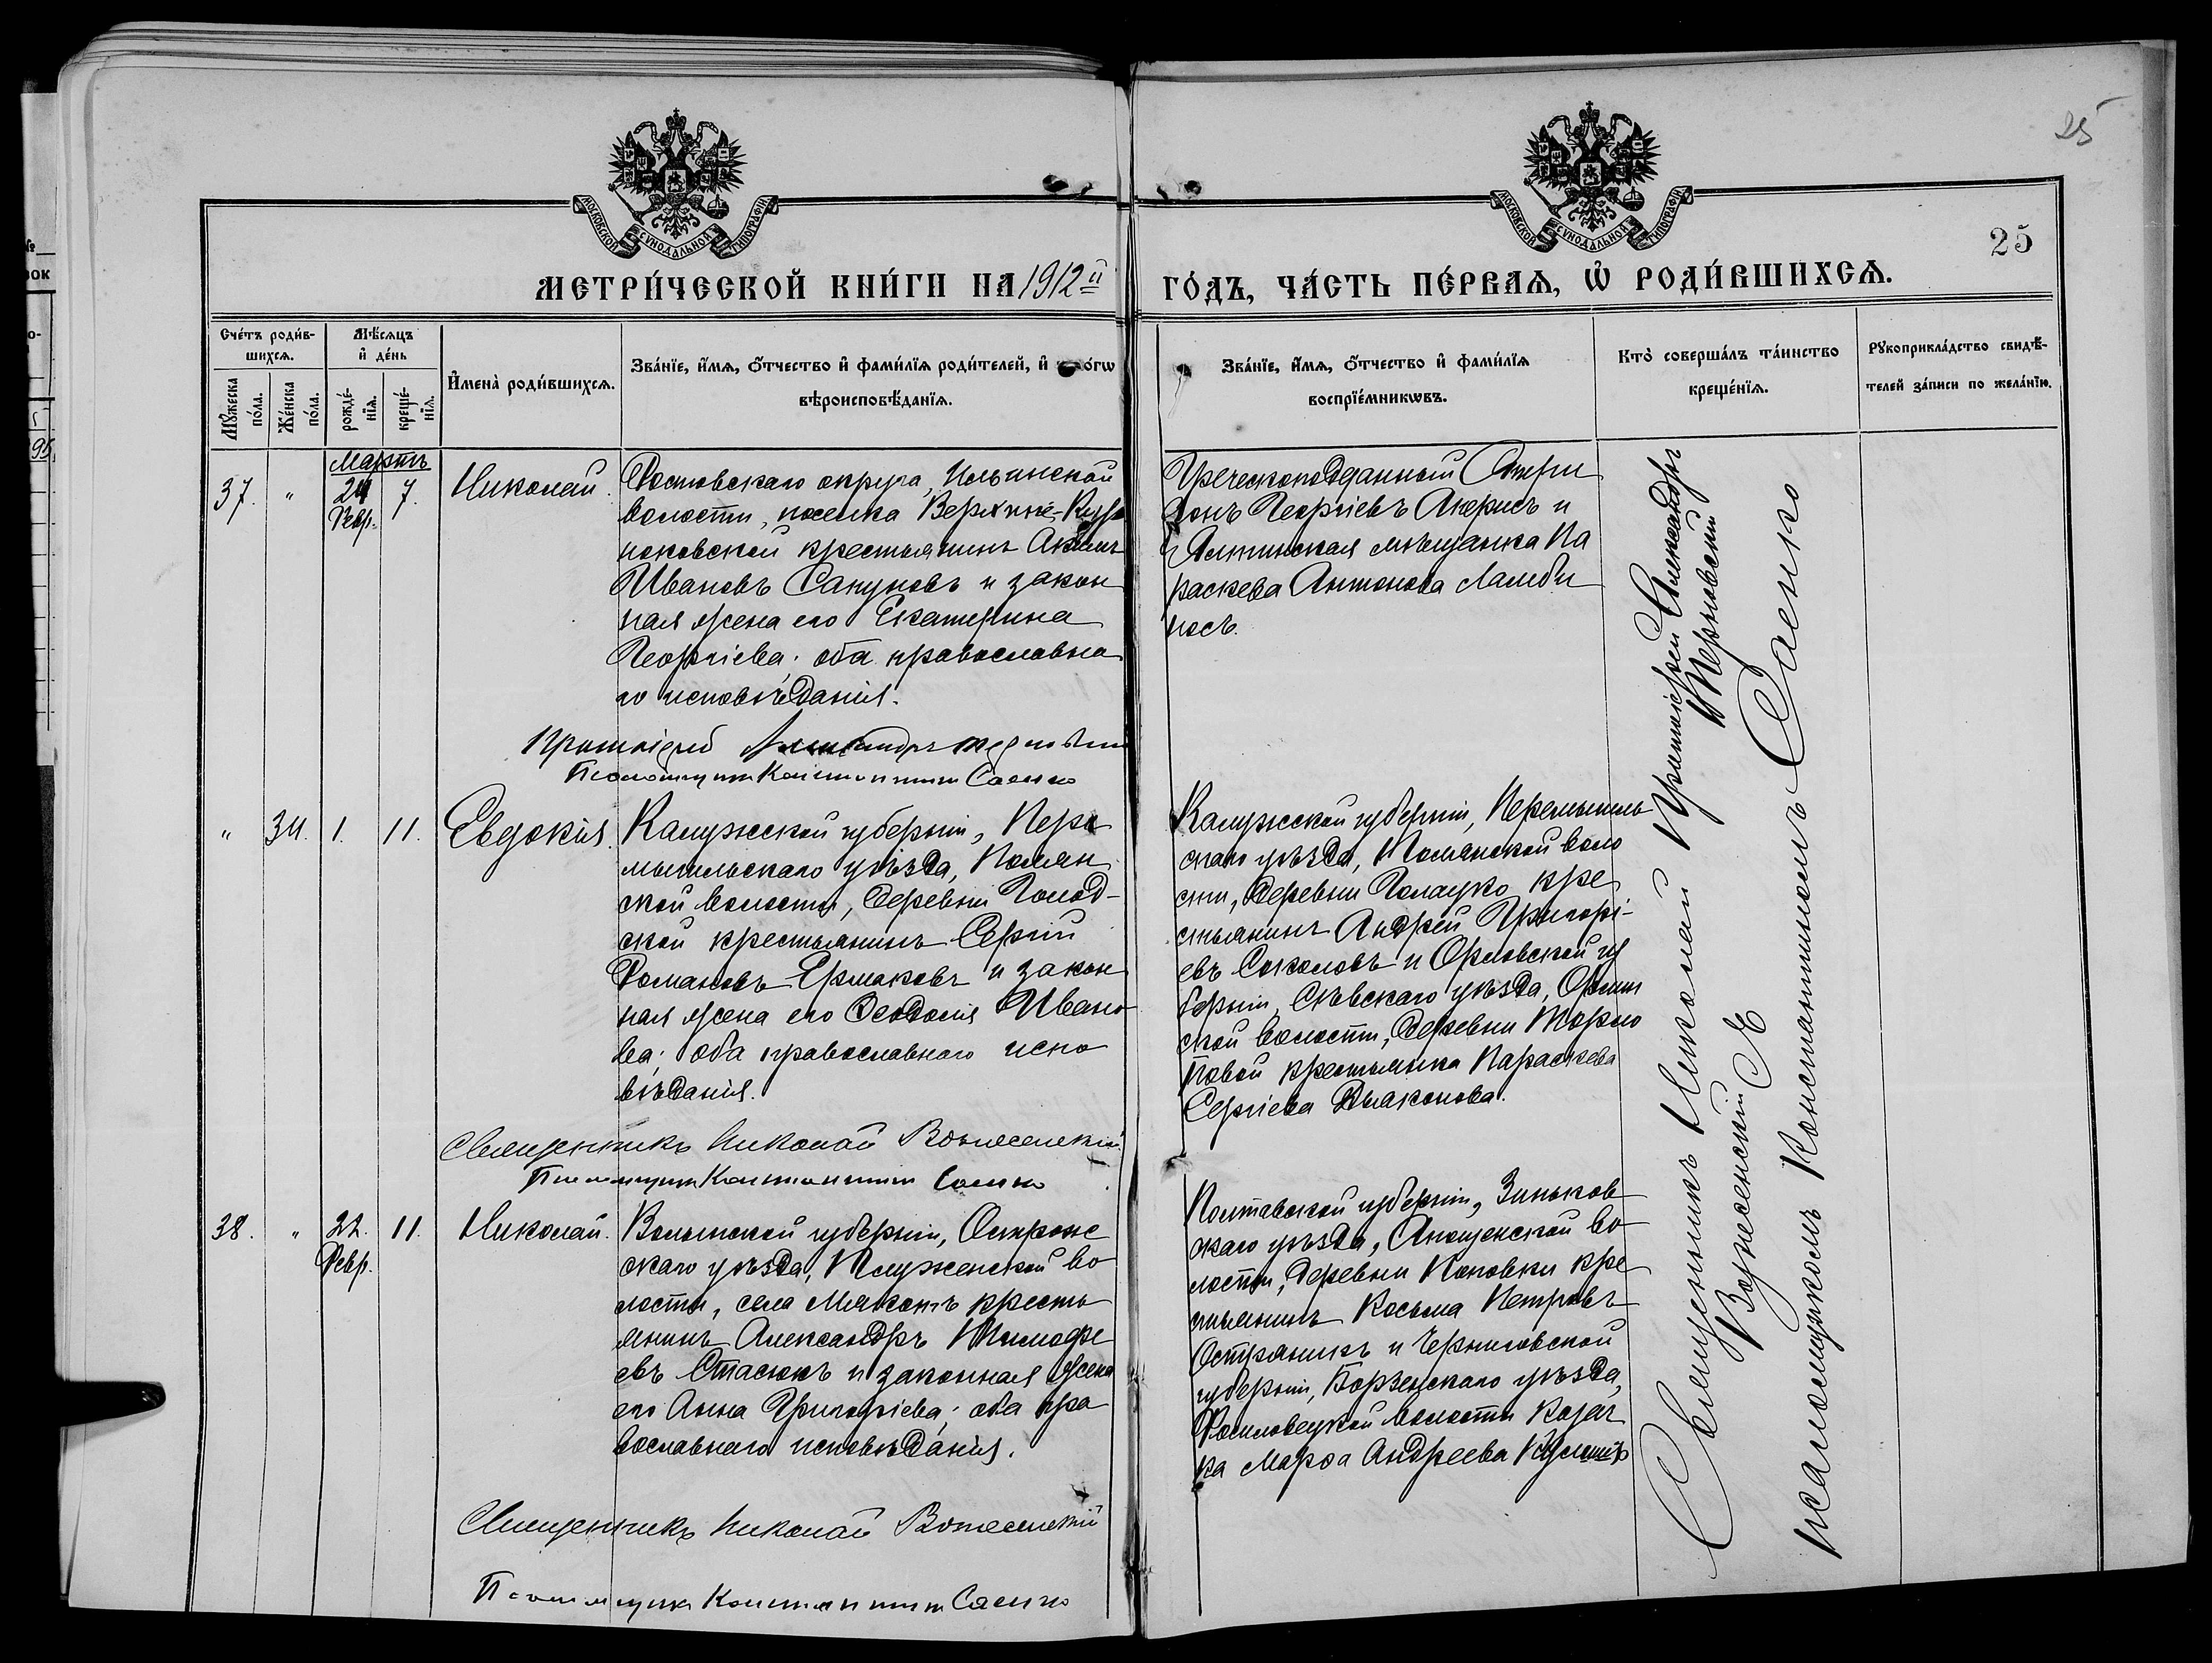 25
25
МОСКОВСКОЙ СѴНОДАЛЬНОЙ ТИПОГРАФІИ
МОСКОВСКОЙ СѴНОДАЛЬНОЙ ТИПОГРАФІИ
МЕТРИ́ЧЕСКОЙ КНИ́ГИ НА 1912й ГО́ДЪ, ЧА́СТЬ ПЕ́РВАЯ, Ѡ РОДИ́ВШИХСЯ.
Сче́тъ роди́в-
шихся.
Мѣ́сяцъ
и де́нь
Мꙋ́жеска
по́ла.
Же́нска
по́ла.
рожде́-
нїя.
креще́-
нїя.
Имена̀ роди́вшихся.
Зва́нїе, и́мя, о́тчество и фами́лїя роди́телей, и
вѣроисповѣ́данїя.
Зва́нїе, и́мя, о́тчество и фами́лїя
воспрїе́мникѡвъ.
Кто̀ соверша́лъ та́инство
креще́нїя.
Рꙋкоприкла́дство свидѣ́-
телей за́писи по жела́нїю.
Мартъ
37. " 24 7. Николай.
Февр.
Ростовскаго округа, Ильинской
волости, поселка
крестьянинъ
Ивановъ Сапуновъ и закон
ная жена его Екатерина
Георгіева; оба православна
го исповѣданія.
Протоіерей Александръ Терновскій
Псаломщикъ Константинъ Саенко
Греческоподданный
Георгіевъ и
Ялтинская мѣщанка Па
раскева Антонова Ламби
носъ.
" 34. 1. 11. Евдокія.
Калужской губерніи, Пере
мышльскаго уѣзда,
ской волости, деревни
ской крестьянинъ Сергій
Романовъ Ермаковъ и закон
ная жена его Феодосія Ивано
ва; оба православнаго испо
вѣданія.
Священникъ Николай Вознесенскій
Псаломщикъ Константинъ Саенко
Калужской губерніи, Перемышль
скаго уѣзда, воло
сти, деревни кре
стьянинъ Андрей Григорі-
евъ Соколовъ и Орловской гу
берніи, Сѣвскаго уѣзда,
ской волости, деревни
крестьянка Параскева
Сергіева Дьяконова.
38. " 22. 11. Николай.
Февр.
Волынской губерніи, Острож
скаго уѣзда, Плужненской во
лости, села крестья
янинъ Александръ Тимофе
евъ Стасюкъ и законная жена
его Анна Григоріева; оба пра
вославнаго исповѣданія.
Священникъ Николай Вознесенскій
Псаломщикъ Константинъ Саенко
Полтавской губерніи, Зиньков
скаго уѣзда, во
лости, деревни Поповки кре
стьянинъ Косьма Петровъ
и Черниговской
губерніи, Борзенскаго уѣзда,
волости козач
ка Марѳа Андреева
Священникъ Николай
Вознесенскій
Протоіерей Александръ
Терновскій
псаломщикомъ Константиномъ Саенко